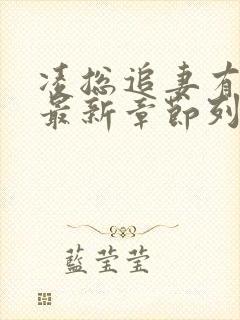 凌总追妻有
最新章节列
藍莹莹